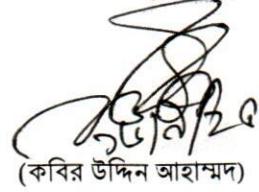 (কবির উদ্দিন আহাম্মদ)